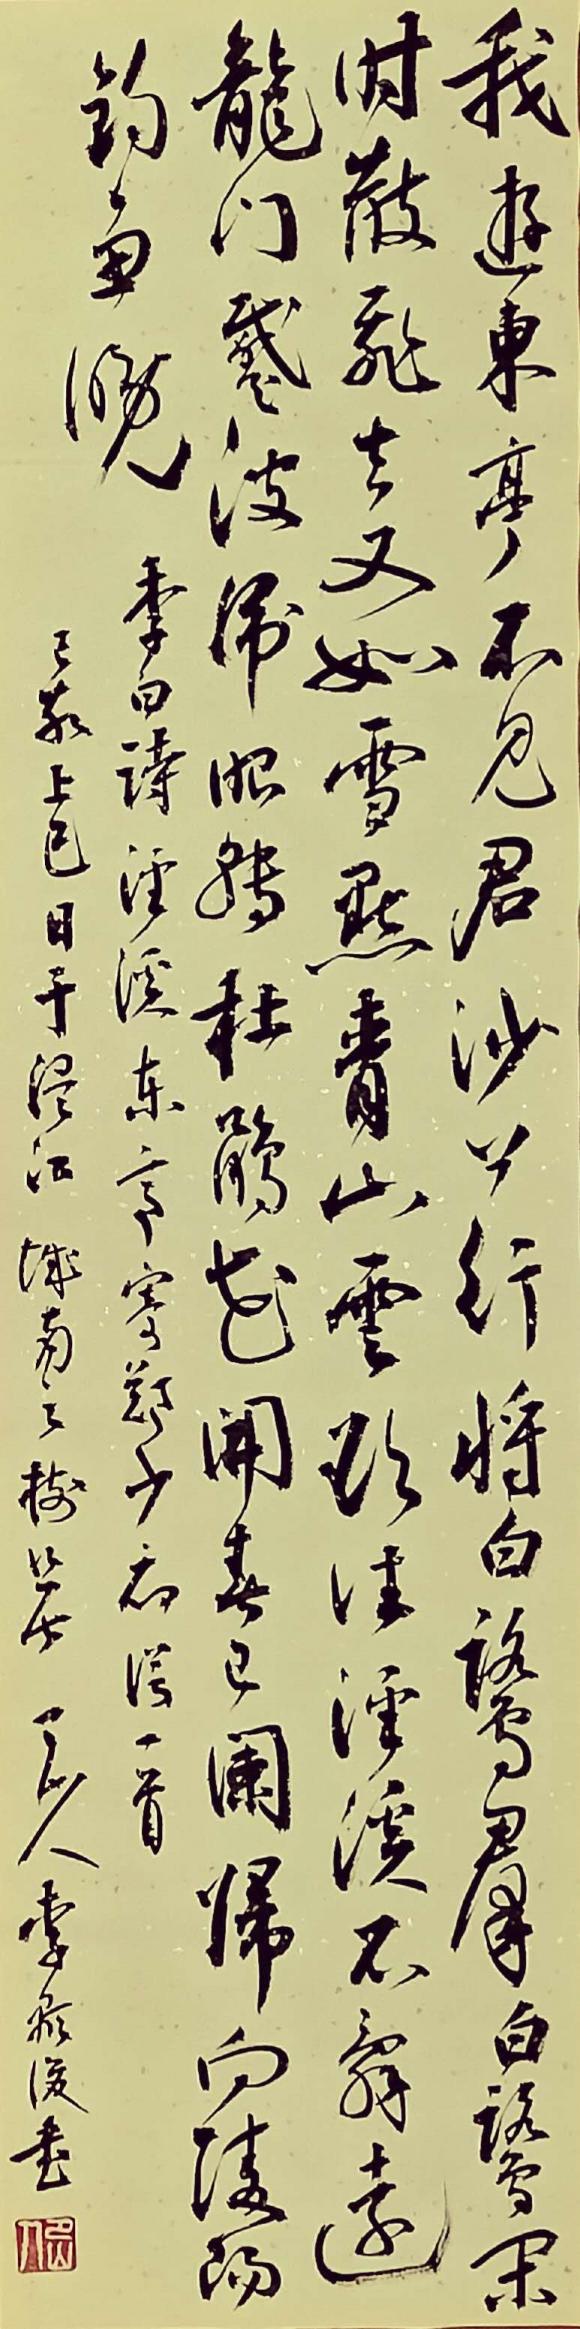 我遊東亭不見君沙上行將白鷺羣白鷺閑
時散飛去又如雪點青山雲欲往涇溪不辭遠
龍門蹙波虎眼轉杜鵑花開春已闌歸向陵陽
釣魚晚
李白詩涇溪东亭寄鄭少府諤一首
己亥上巳日于江城南之人李俊書